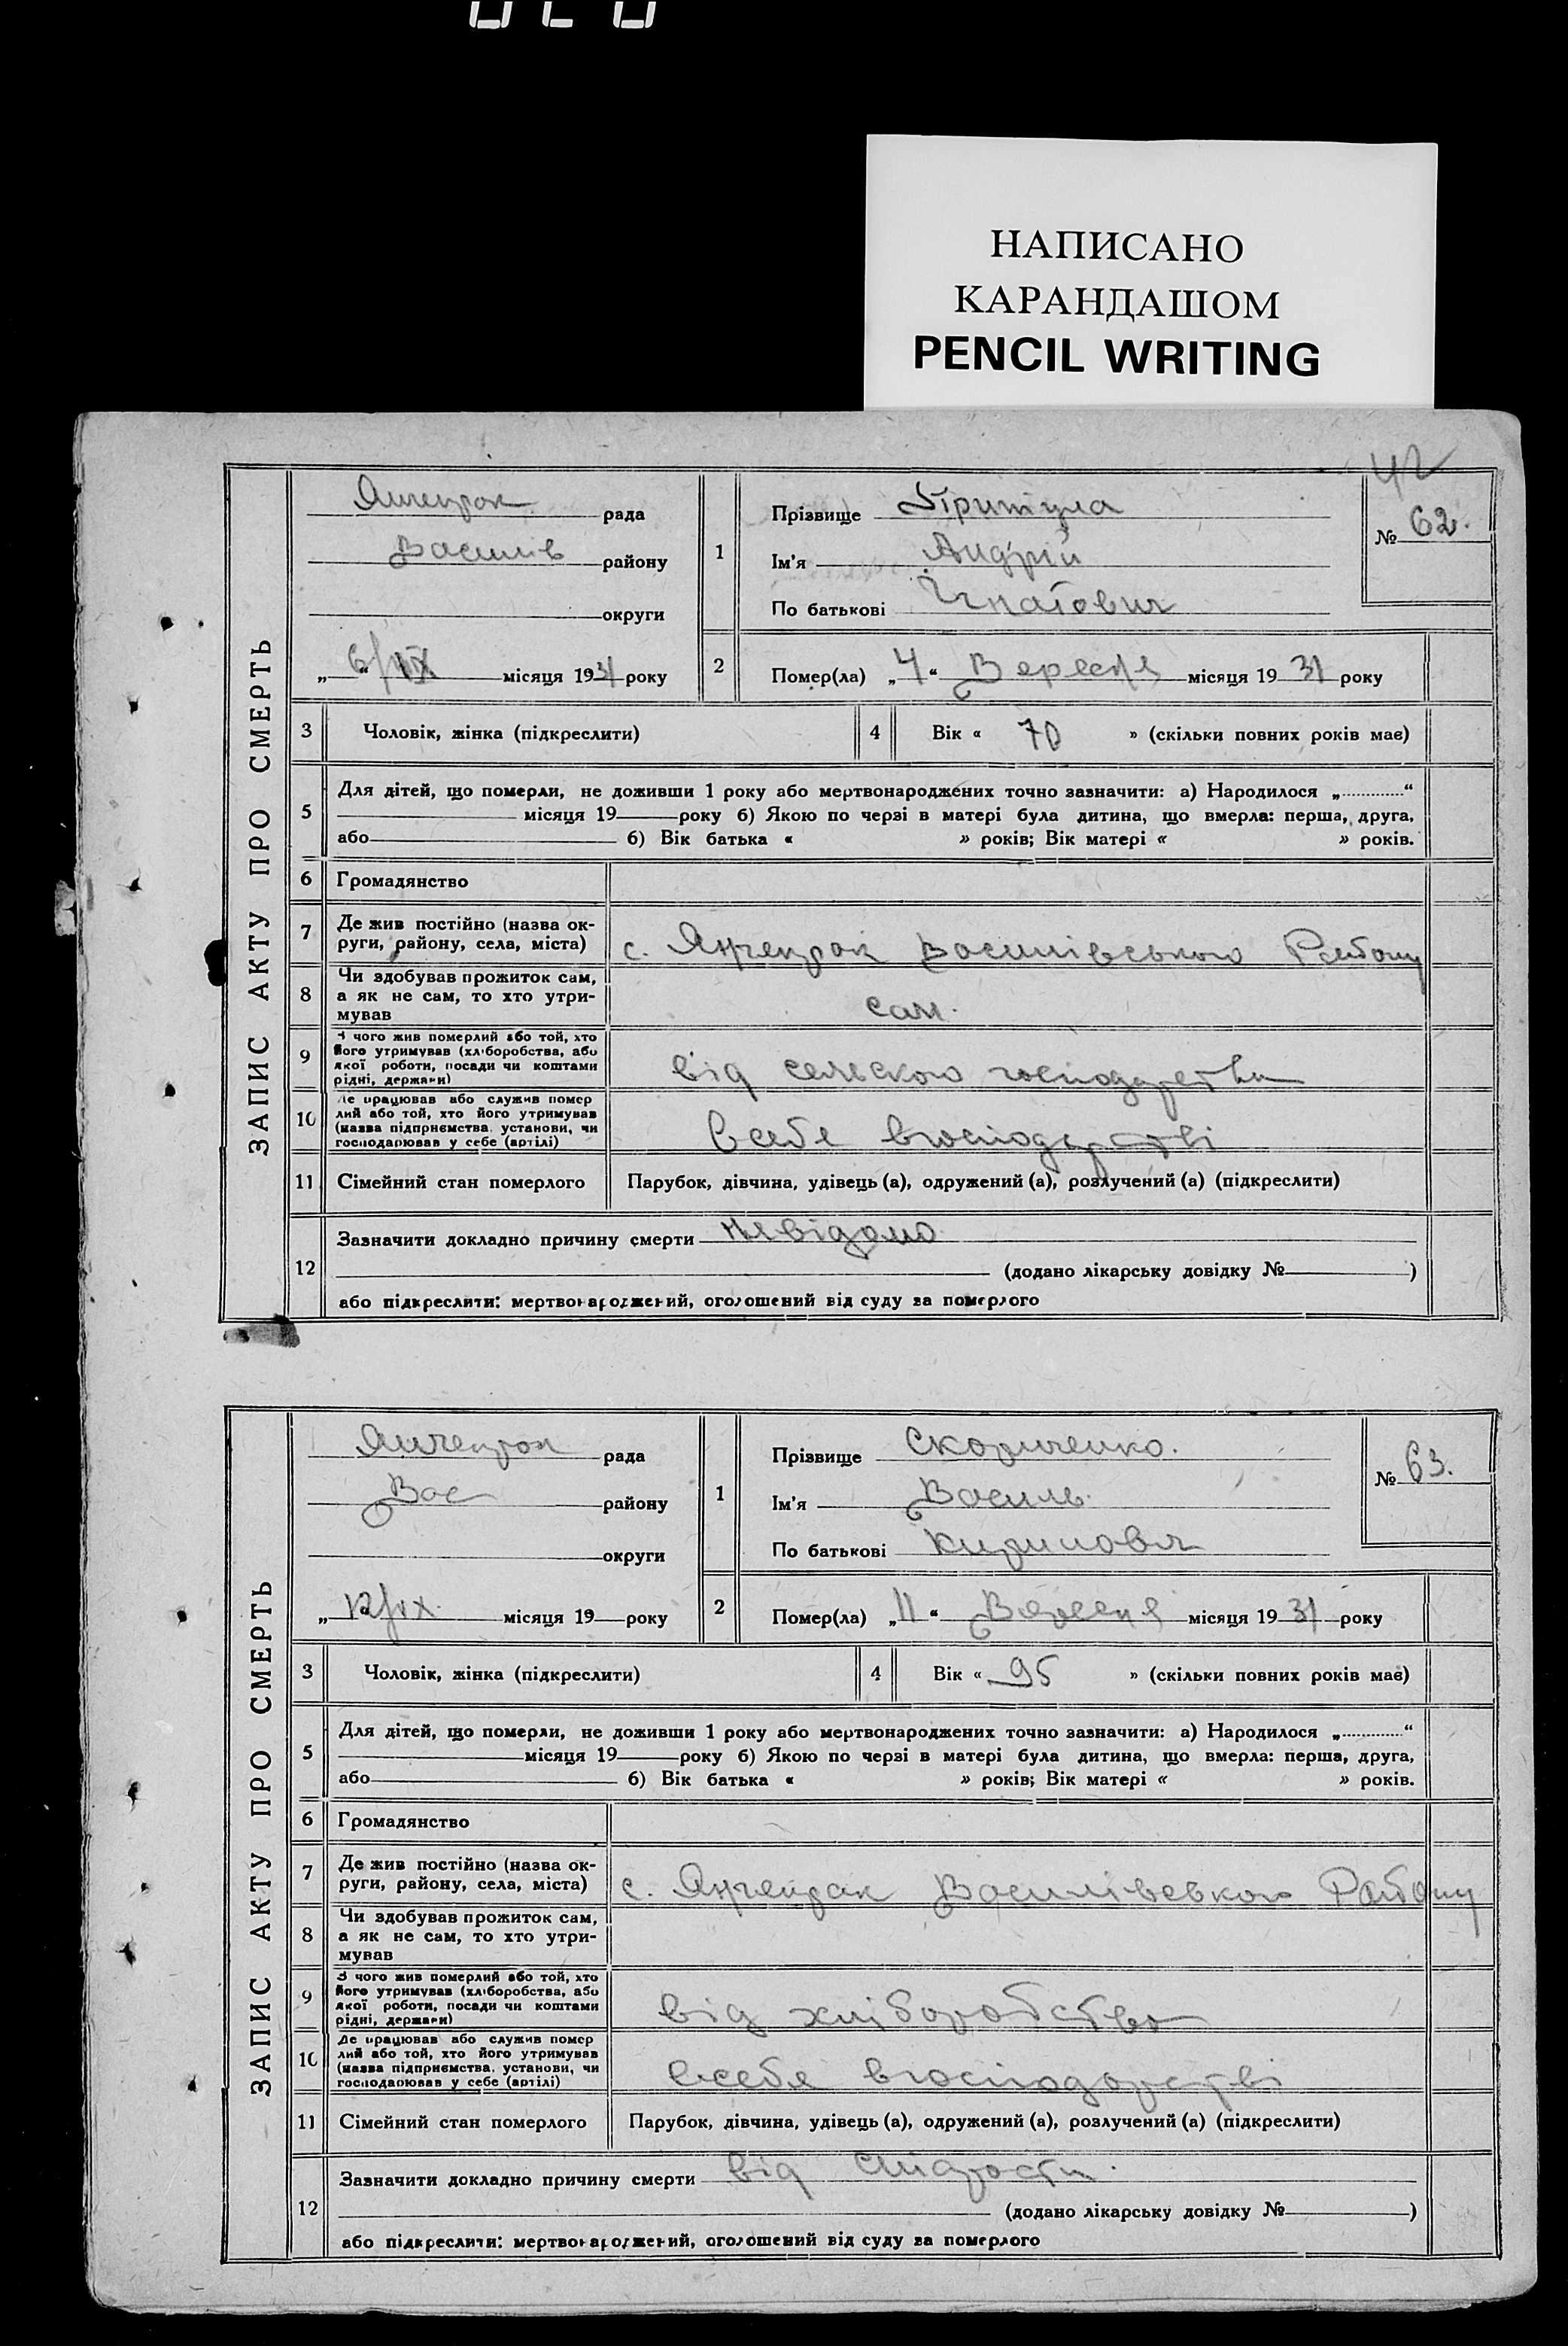 НАПИСАНО
КАРАНДАШОМ
PENCIL WRITING
42
ЗАПИС АКТУ ПРО СМЕРТЬ
Янчекрак рада
Василів району
округи
„ 6/IX місяця 1931 року
1
Прізвище Притула
Ім'я Андрій
По батькові Игнатович
№ 62.
2 Помер(ла) „4“ Вересня місяця 19 31 року
3 Чоловік, жінка (підкреслити)
4 Вік « 70 » (скільки повних років має)
5 Для дітей, що померли, не доживши 1 року або мертвонароджених точно зазначити: а) Народилося „............“
місяця 19 року б) Якою по черзі в матері була дитина, що вмерла: перша, друга,
або б) Вік батька « » років; Вік матері « » років.
6 Громадянство
7 Де жив постійно (назва ок-
руги, району, села, міста) с. Янчекрак Василівського Району
8 Чи здобував прожиток сам,
а як не сам, то хто утри-
мував сам.
9 З чого жив померлий або той, хто
його утримував (хліборобства, або
якої роботи, посади чи коштами
рідні, держави) від сельского господарства
10 Де працював або служив помер
лий або той, хто його утримував
(назва підприємства, установи, чи
господарював у себе (артілі) Всебе вгосподарстві
11 Сімейний стан померлого Парубок, дівчина, удівець (а), одружений (а), розлучений (а) (підкреслити)
12 Зазначити докладно причину смерти Невідомо
(додано лікарську довідку № )
або підкреслити: мертвонароджений, оголошений від суду за померлого
ЗАПИС АКТУ ПРО СМЕРТЬ
Янчекрак рада
Вас району
округи
„ 12/IX місяця 19 року
1
Прізвище
Ім'я Василь.
По батькові Кирилович
№ 63.
2 Помер(ла) „11“ Вересня місяця 19 31 року
3 Чоловік, жінка (підкреслити)
4 Вік « 95 » (скільки повних років має)
5 Для дітей, що померли, не доживши 1 року або мертвонароджених точно зазначити: а) Народилося „............“
місяця 19 року б) Якою по черзі в матері була дитина, що вмерла: перша, друга,
або б) Вік батька « » років; Вік матері « » років.
6 Громадянство
7 Де жив постійно (назва ок-
руги, району, села, міста) с. Янчекрак Василівського Району
8 Чи здобував прожиток сам,
а як не сам, то хто утри-
мував
9 З чого жив померлий або той, хто
його утримував (хліборобства, або
якої роботи, посади чи коштами
рідні, держави) від хліборобства
10 Де працював або служив помер
лий або той, хто його утримував
(назва підприємства, установи, чи
господарював у себе (артілі) Всебе вгосподарстві
11 Сімейний стан померлого Парубок, дівчина, удівець (а), одружений (а), розлучений (а) (підкреслити)
12 Зазначити докладно причину смерти від
(додано лікарську довідку № )
або підкреслити: мертвонароджений, оголошений від суду за померлого